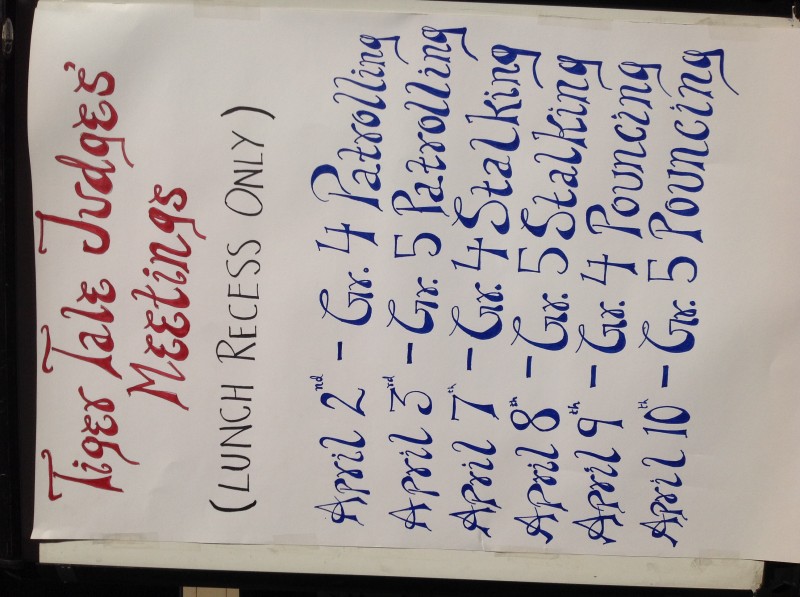 Tiger Tale Judges'
Meetings
(LUNCH RECESS ONLY)
April 2nd - Gr. 4 Patrolling
April 3rd - Gr. 5 Patrolling
April 7th - Gr. 4 Stalking
April 8th - Gr. 5 Stalking
April 9th - Gr. 4 Pouncing
April 10th - Gr. 5 Pouncing